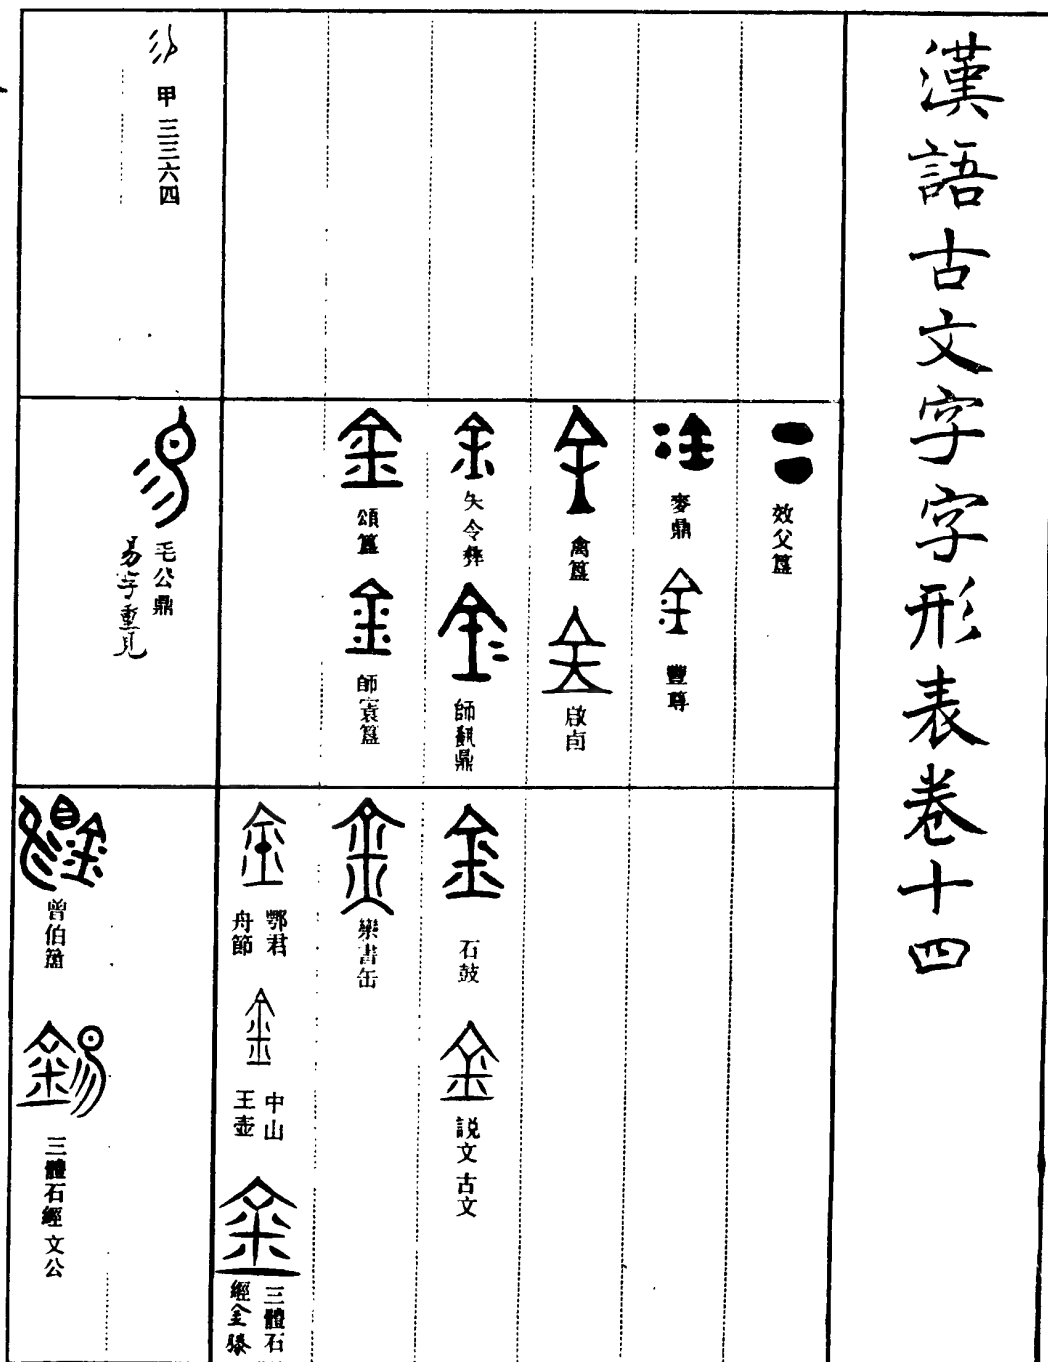 漢語古文字字形表卷十四
效父簋
麥鼎
豐尊
禽簋
啟卣
夨令彝
師𩛥鼎
頌簋
師寰簋
石鼓
說文古文
欒書缶
鄂君
舟節
中山
王壺
三體石
經金縢
甲三三六四
毛公鼎
易字重見
曾伯簠
三體石經文公